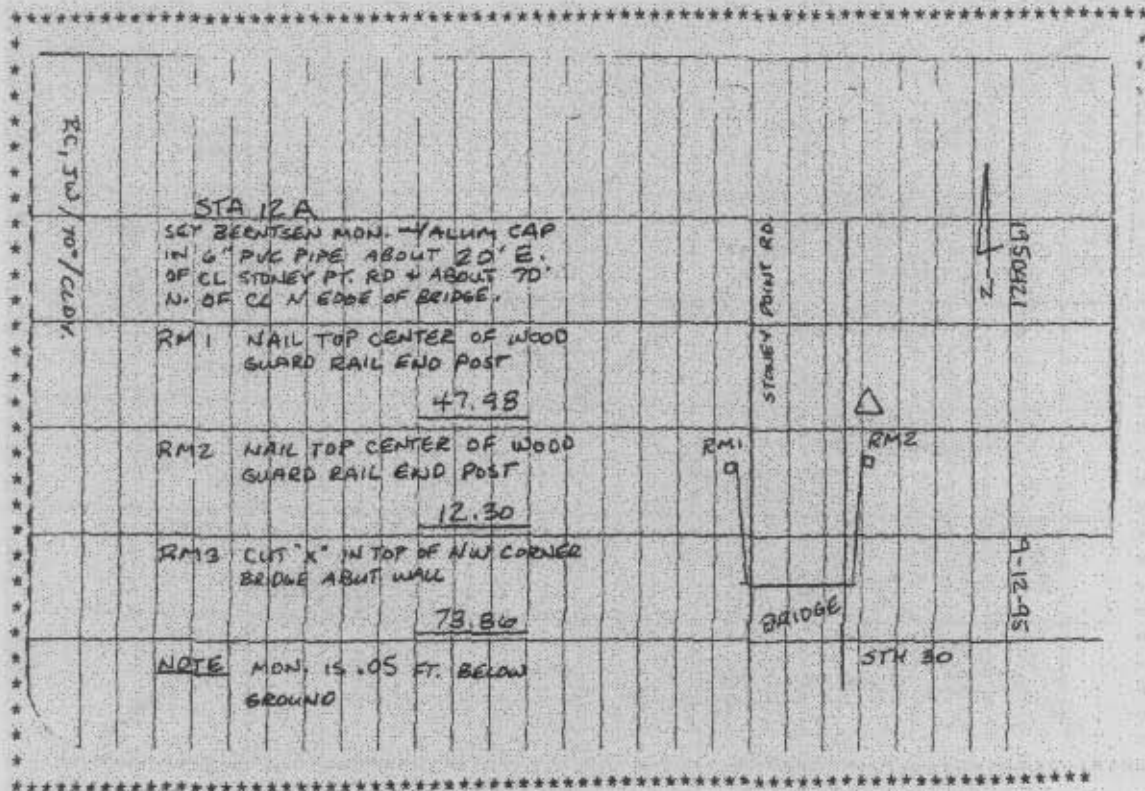 STA 12A
SET BERNTSEN MON. W/ALUM CAP
IN 6" PVC PIPE ABOUT 20' E.
OF CL STONEY PT. RD & ABOUT 70'
N. OF CL N EDGE OF BRIDGE.
RM 1 NAIL TOP CENTER OF WOOD
GUARD RAIL END POST
47.98
RM2 NAIL TOP CENTER OF WOOD
GUARD RAIL END POST
12.30
RM3 CUT "X" IN TOP OF NW CORNER
BRIDGE ABUT WALL
73.86
NOTE MON. IS .05 FT. BELOW
GROUND
JW/70°/CLDY.
STONEY POINT RD.
RM1
RM2
BRIDGE
STH 30
N
1950421
9-12-95